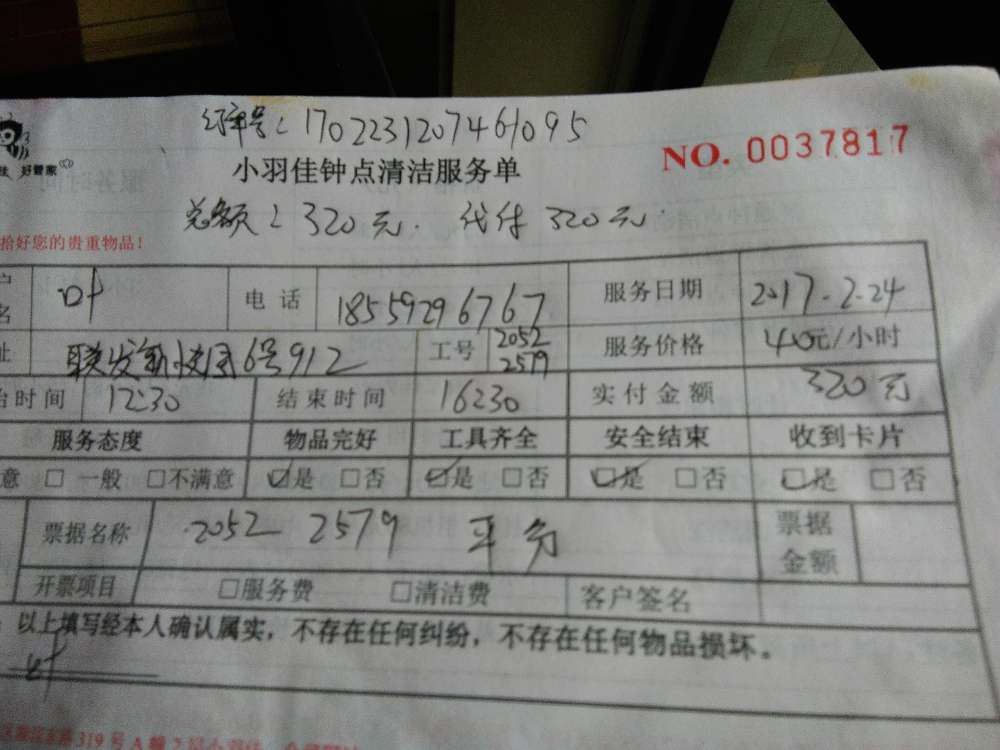 订单号:1702231207461095
好管家
NO. 0037817
小羽佳钟点清洁服务单
总额:320元. 代付 320元.
拾好您的贵重物品!
户名 叶 电话 18559296767 服务日期 2017.2.24
址 联发新 6号912 工号 2052 2579 服务价格 40元/小时
始时间 12:30 结束时间 16:30 实付金额 320元
服务态度 物品完好 工具齐全 安全结束 收到卡片
意 □ 一般 □不满意 ☑是 □否 ☑是 □否 ☑是 □否 ☑是 □否
票据名称 2052 2579 平分 票据金额
开票项目 □服务费 □清洁费 客户签名
以上填写经本人确认属实，不存在任何纠纷，不存在任何物品损坏。
叶
319号A幢2层小羽佳